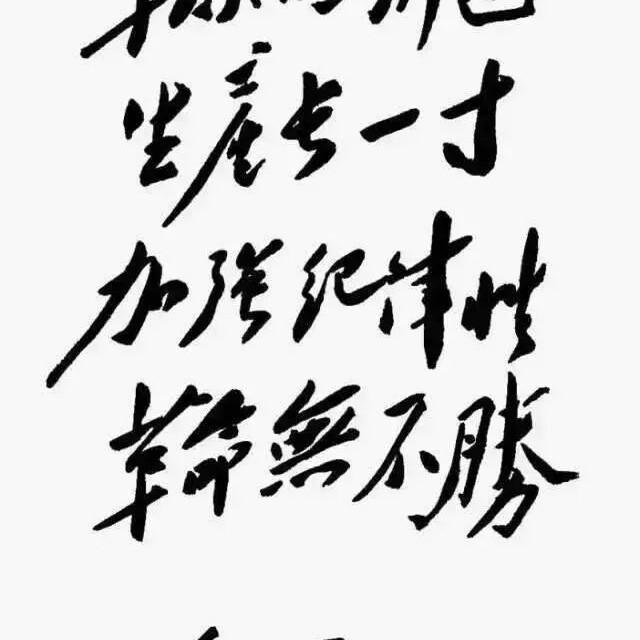 生產长一寸
加强纪律性
革命無不勝